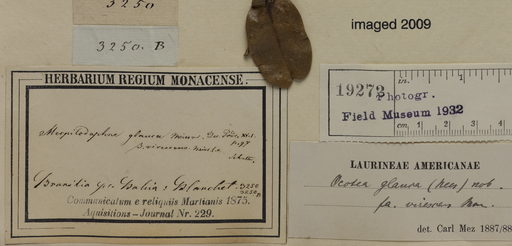 3250
3250. B
imaged 2009
HERBARIUM REGIUM MONACENSE.
Mespilodaphne glauca
Brasilia Bahia: Blanchet. 3250
3250 B
Communicatum e reliquiis Martianis 1875.
Aquisitions - Journal Nr. 229.
in. 1
19272
Photogr.
Field Museum 1932
cm 1 2 3 4
LAURINEAE AMERICANAE
Ocotea glauca (Nees)
fa. virescens
det. Carl Mez 1887/88